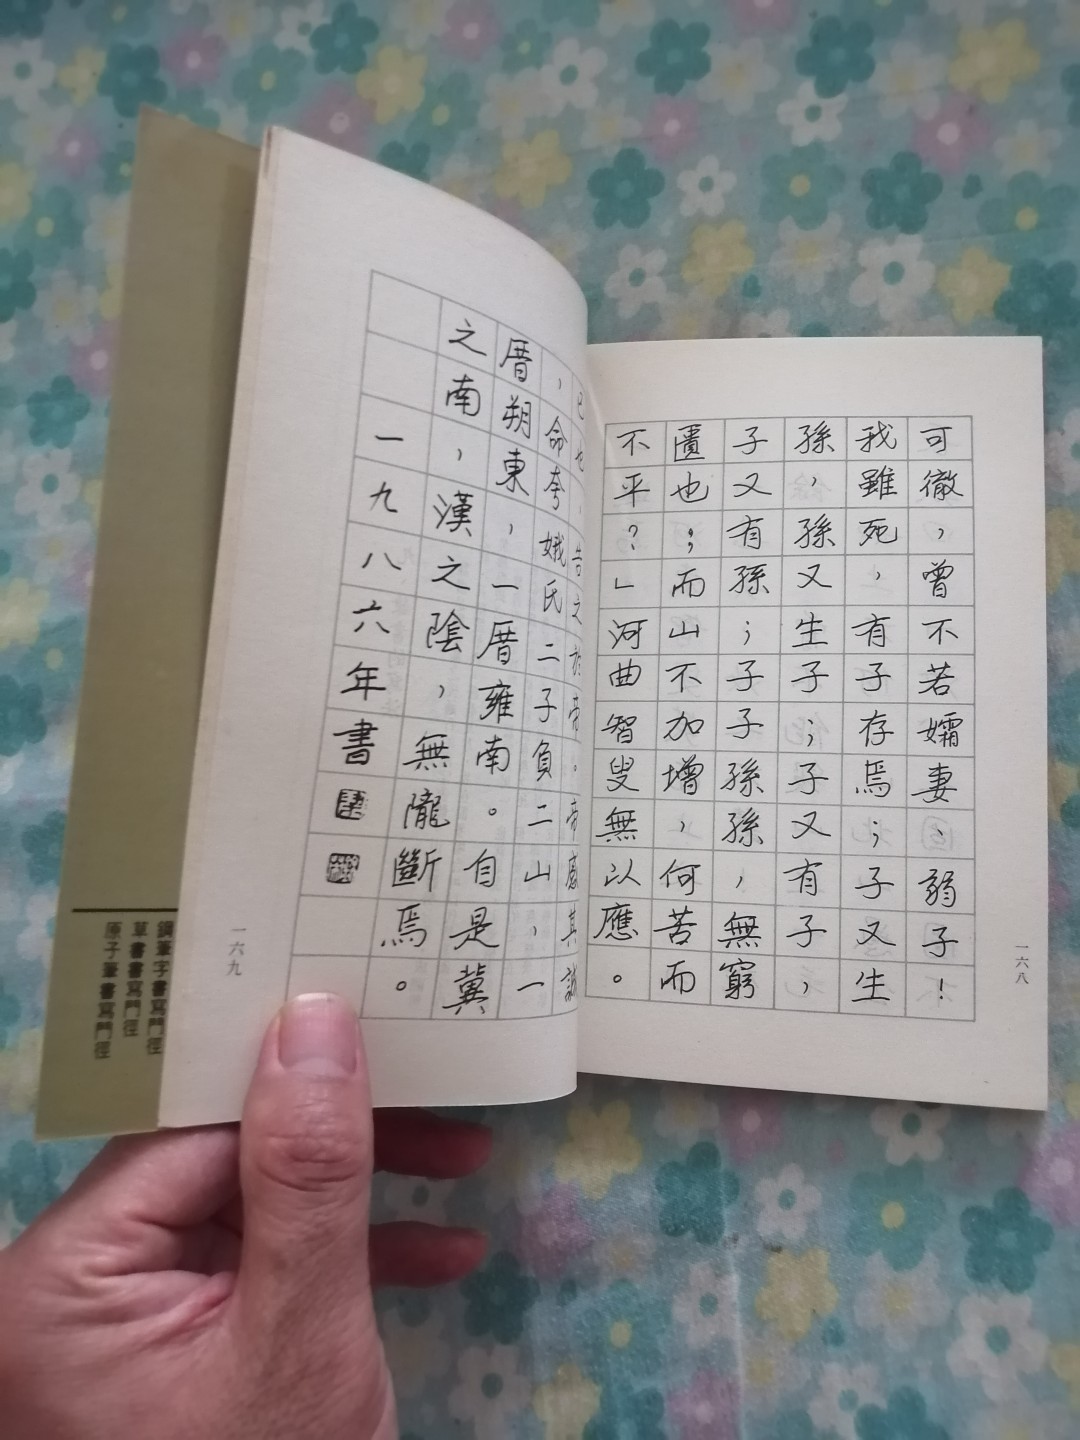 可徹，曾不若孀妻、弱子！
我雖死，有子存焉；子又生
孫，孫又生子；子又有子，
子又有孫；子子孫孫，無窮
匱也；而山不加增，何苦而
不平？」河曲智叟無以應。
一六八
已也，告之於帝。帝感其誠
，命夸娥氏二子負二山，一
厝朔東，一厝雍南。自是冀
之南，漢之陰，無隴斷焉。
一九八六年書
一六九
鋼筆字書寫門徑
草書書寫門徑
原子筆書寫門徑